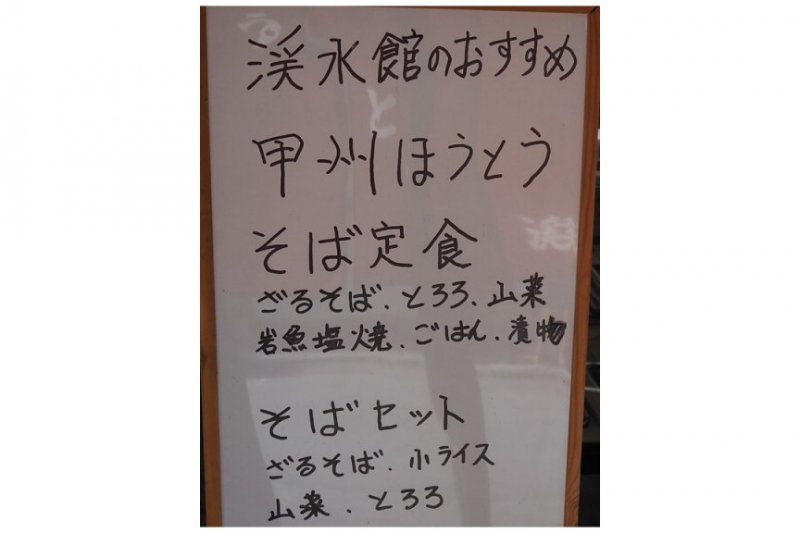 渓水館のおすすめ
甲州ほうとう
そば定食
ざるそば.とろろ.山菜
岩魚塩焼.ごはん.漬物
そばセット
ざるそば.小ライス
山菜.とろろ